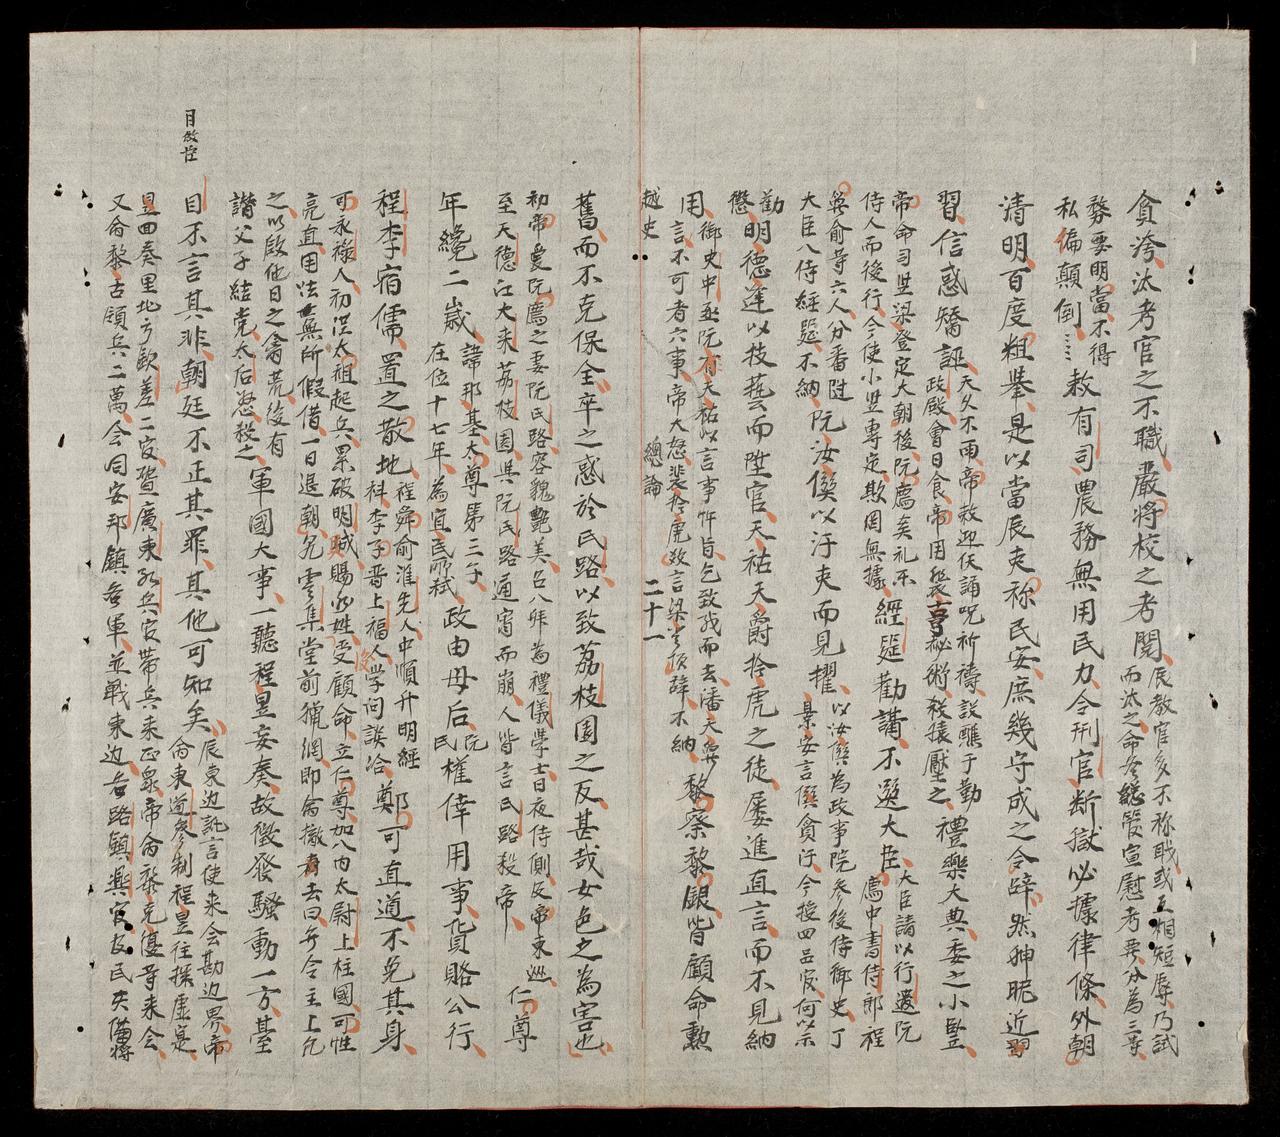 貪淤汰考官之不職嚴將校之考閱
辰教官多不称职或互相短辱乃試
而汰之命各總管宣慰考要分為三等
務要明當不得
私偏顛倒
敕有司農務無用民力令刑官断獄必據律條外朝
清明百度粗举是以當辰吏称民安庶幾守成之令辟然狎昵近習
習信惑矯誣
天久不雨帝敕迎伏誦呪祈禱設醮于勤
政殿會日食帝用裴亨秘術殺猿壓之
禮樂大典委之小豎
帝命司豎梁登定大朝後阮廌奏礼乐
侍人而後行今使小豎專定欺罔無據
經筵勸講不選大臣
大臣諸以行遣阮
廌中書侍郎程
舜俞等六人分番陞
大臣入侍經筵不納
阮汝僎以汙吏而見擢
以汝僎為政事院参後侍御史丁
景安言僎貪汙今授四品官何以示
勸
懲
明德蓮以技藝而陞官天祐天爵拾虎之徒屡進直言而不見納
用
御史中丞阮有天祐以言事忤旨乞致我而去潘天舜
言不可者六事帝大怒裴拾虎致言梁登煩辞不納
黎察黎銀皆顧命勲
越史 總論 二十一
舊而不克保全卒之惑於氏路以致荔枝園之反甚哉女色之為害也
初帝愛阮廌之妻阮氏路容貌艶美召入拜為禮儀學士日夜侍側及帝東巡
至天德江大来荔枝園與阮氏路通宵而崩人皆言氏路殺帝
仁尊
年纔二歲
諱那基太尊第三子
在位十七年為宜民所弒
政由母后
阮
氏
權倖用事貨賂公行
程李宿儒置之散地
程舜俞淮先人中順升明經
科李子晋上福人学问該洽
鄭可直道不免其身
可永禄人初從太祖起兵累破明贼賜姓受顧命立仁尊加入内太尉上柱國可性
亮直用法無所假借一日退朝見雲集堂前獵網即命撤去曰无令主上見
之以啟他日之禽荒後有
譖父子結党太后怒殺之
軍國大事一聽程昱妄奏故徵發騷動一方基
目不言其非朝廷不正其罪其他可知矣
辰東边訛言使来会勘边界帝
命東道参制程昱往探虚寔
昱回奏里地亏歉差二官暨廣東都兵官带兵来正衆帝命黎克復等来会
又命黎古領兵二萬会同安邦鎮各軍並戰東边各路鎮與官及民夫備将
目做臣